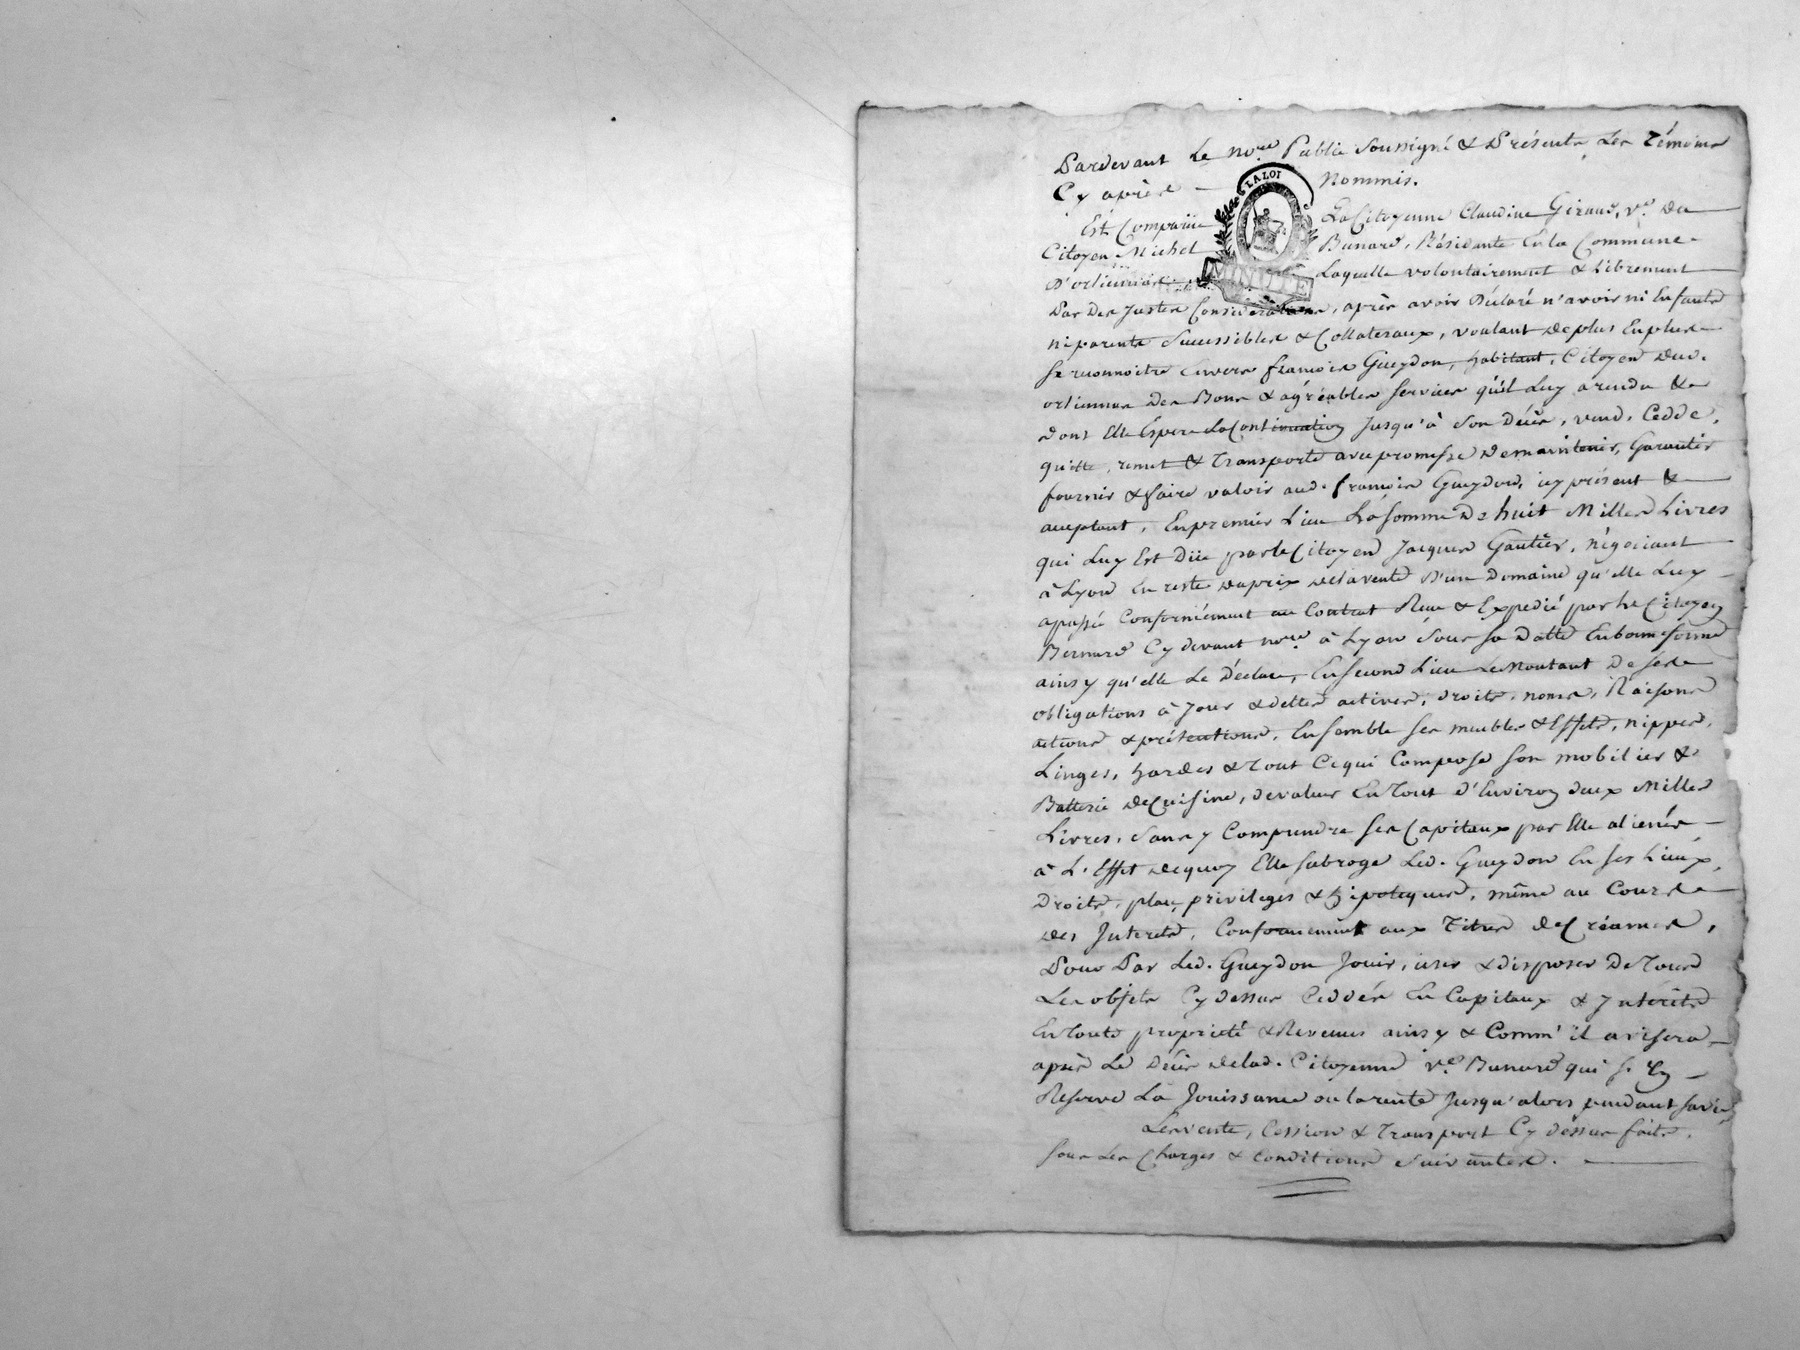 Pardevant Le no.re Public Soussigné & Présents Les Témoins
Cy après — Nommés.
LA LOI
Est Comparüe La Citoyenne Claudine Giraud, v.e du
Citoyen Michel Bunard, Résidante En la Commune
D'orlienas Laquelle volontairement & Librement
MINUTE
Par Des Justes Considérations, après avoir Déclaré n'avoir ni Enfants
ni parents Successibles & Collateraux, voulant De plus En plus
Se reconnoitre Envers françois Gueydon, habitant, Citoyen dud.
orlienas Des Bons & agréables Services qu'il Luy a rendu &
dont Elle Espere La Continuation Jusqu'à Son Décès, vend, Cedde,
quitte, remet & Transporte avec promesse De maintenir, Garantir
fournir & faire valoir aud. françois Gueydon, icy présent &
acceptant, En premier Lieu La Somme De huit Milles Livres
qui Luy Est Düe par le Citoyen Jacques Gautier, négociant
à Lyon En reste du prix De la vente D'un Domaine qu'elle Luy
a passé Conformément au Contrat Reçu & Expedié par Le Citoyen
Bernard Cy devant no.re à Lyon Sous Sa Datte En bonne forme
ainsy qu'elle Le Déclare, En Second Lieu Le Montant De Ses
obligations à Jour & dettes actives, droits, noms, Raisons
actions & prétentions, Ensemble Ses meubles & Effets, nippes,
Linges, hardes & Tout Ce qui Compose Son mobilier &
Batterie De Cuisine, De valeur En Tout d'Environ deux Milles
Livres, Sans y Comprendre Ses Capitaux par Elle aliénés
à L'Effet De quoy Elle Subroge Led. Gueydon En Ses Lieux,
Droits, place, privileges & hipoteques, même au Cours
des Interets, Conformément aux Titres De Créances,
Pour Par Led. Gueydon Jouir, user & disposer De Tous
Les objets Cy dessus Ceddés En Capitaux & Intérêts
En Toute propriété & Revenus ainsy & Comm'il avisera
après Le Décès De lad. Citoyenne v.e Bunard qui S'En
Reserve La Jouissance ou la rente Jusqu'alors pendant Sa vie
Les vente, Cession & Transport Cy dessus faits,
Sous Les Charges & Conditions Suivantes.